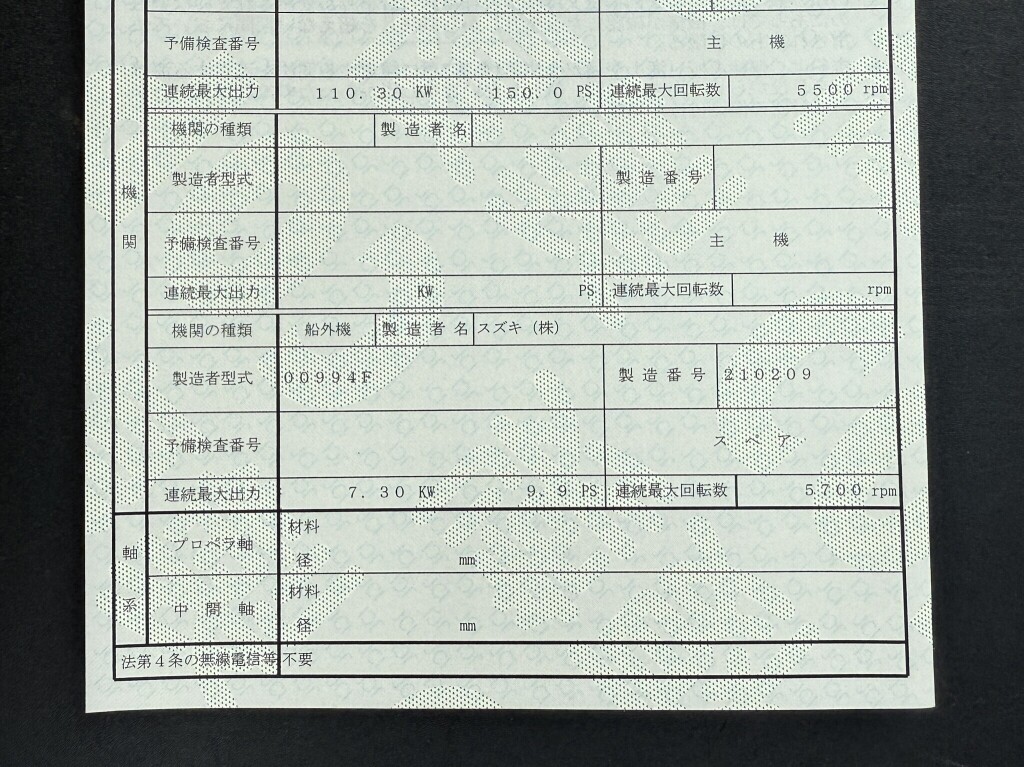 予備検査番号 主 機
連続最大出力 110.30 KW 150.0 PS 連続最大回転数 5500 rpm
機関の種類 製造者名
製造者型式 製造番号
機関
予備検査番号 主 機
連続最大出力 KW PS 連続最大回転数 rpm
機関の種類 船外機 製造者名 スズキ（株）
製造者型式 00994F 製造番号 210209
予備検査番号 スペア
連続最大出力 7.30 KW 9.9 PS 連続最大回転数 5700 rpm
軸系
プロペラ軸 材料
径 mm
中間軸 材料
径 mm
法第４条の無線電信等 不要